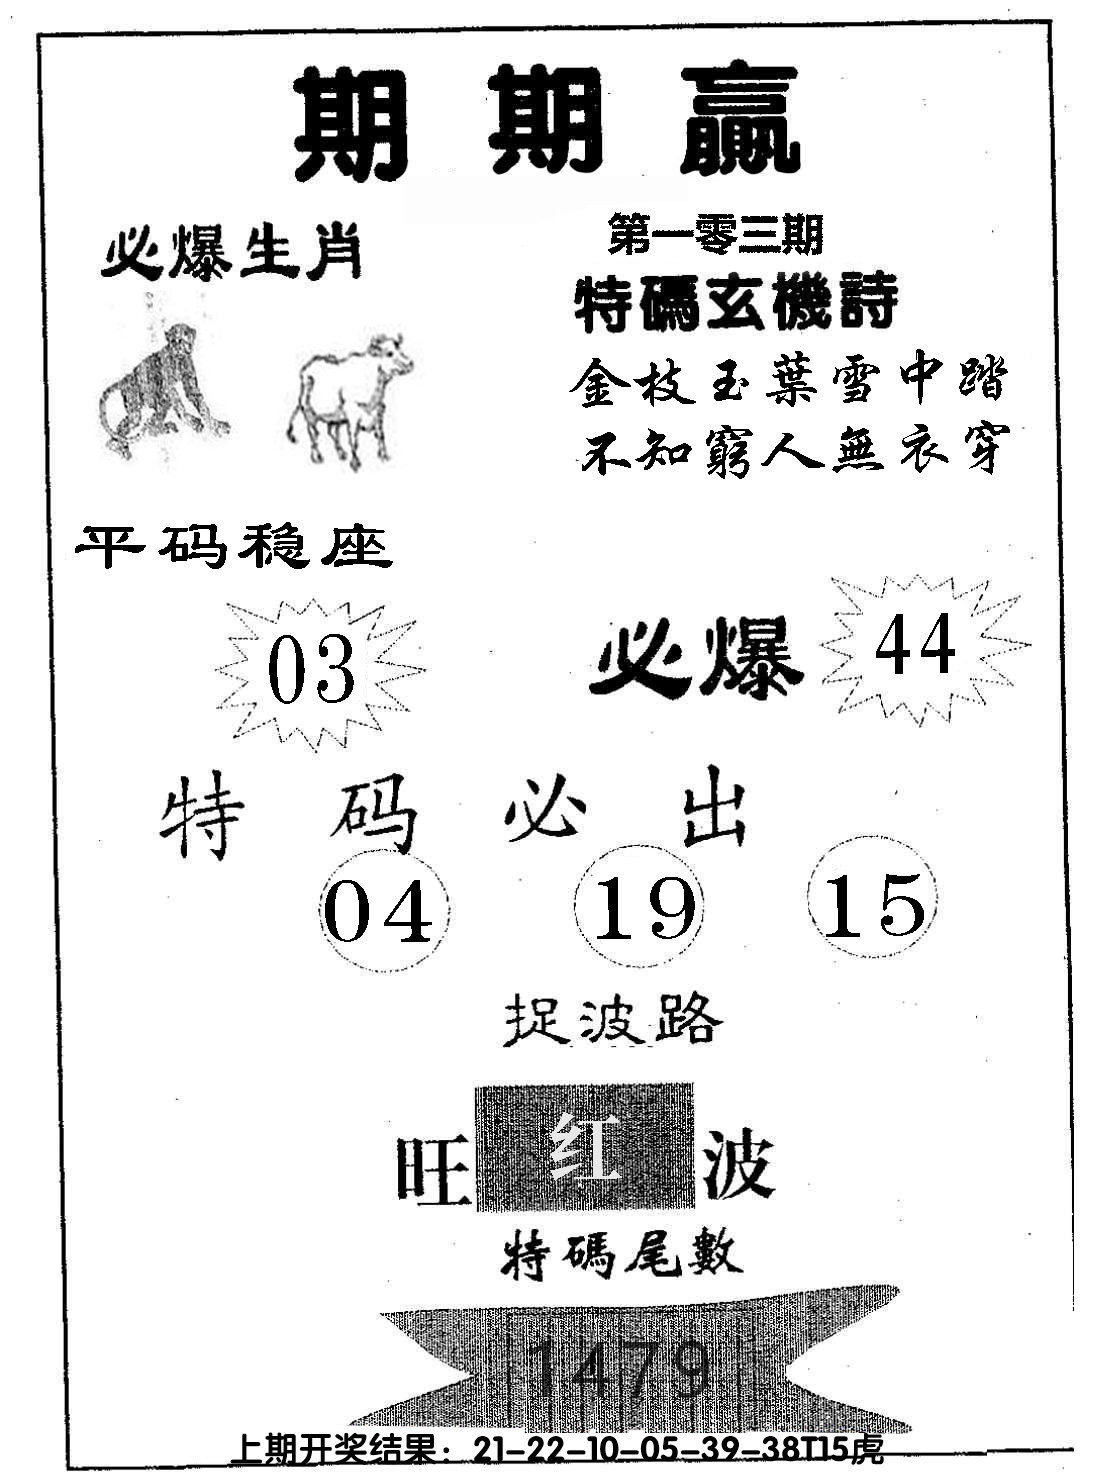 期期赢
必爆生肖
第一零三期
特碼玄機詩
金枝玉葉雪中踏
不知窮人無衣穿
平码稳座
03
必爆
44
特码必出
04 19 15
捉波路
旺红波
特碼尾數
1479
上期开奖结果：21-22-10-05-39-38T15虎